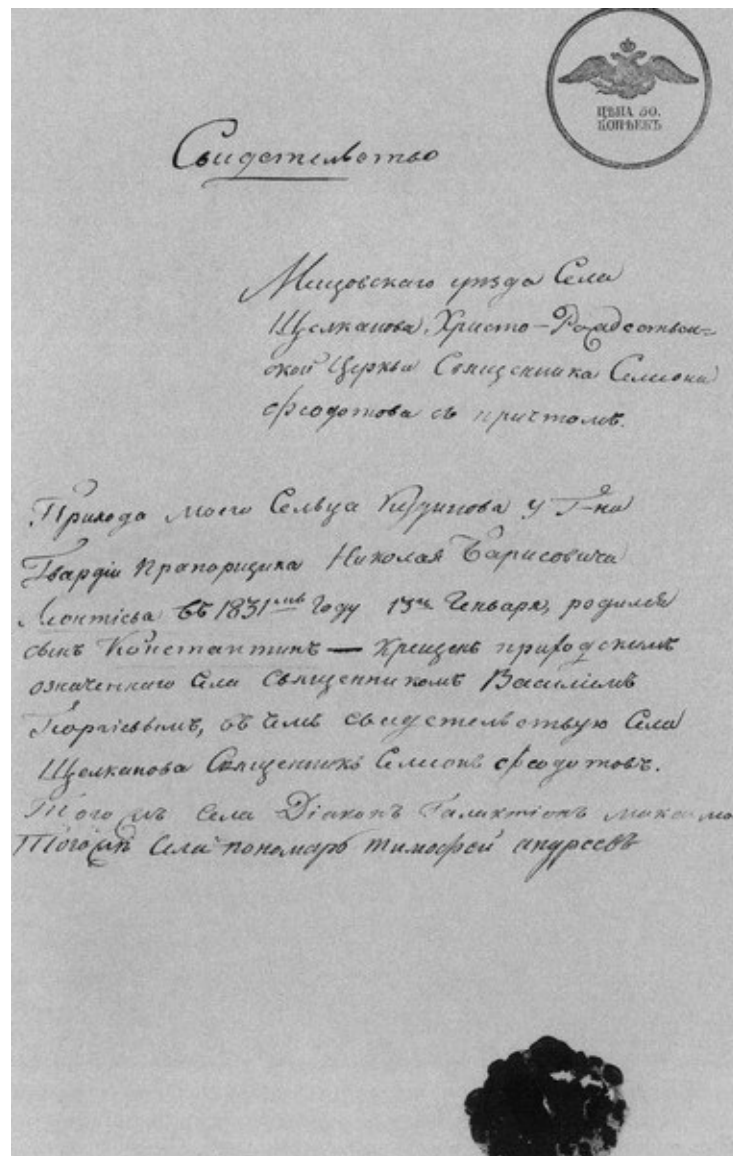 ЦѢНА 50.
КОПѢЕКЪ
Свидетельство
Мещовскаго уѣзда Села
Щелканова, Христо-Рождественс=
кой Церкви Священника Семиона
Феодотова съ причтомъ.
Прихода моего Сельца Кудинова у Г-на
Гвардіи Прапорщика Николая Барисовича
Леонтіева въ 1831мъ Году 13го Генваря, родился
сынъ Константинъ — Крещенъ приходскимъ
означеннаго Села Священникомъ Василіемъ
Георгіевымъ, въ чемъ свидетельствую Села
Щелканова Священникъ Семионъ Феодотовъ.
Того жъ Села Діаконъ Галактіонъ
Того жъ Села пономарь тимофей андреевъ